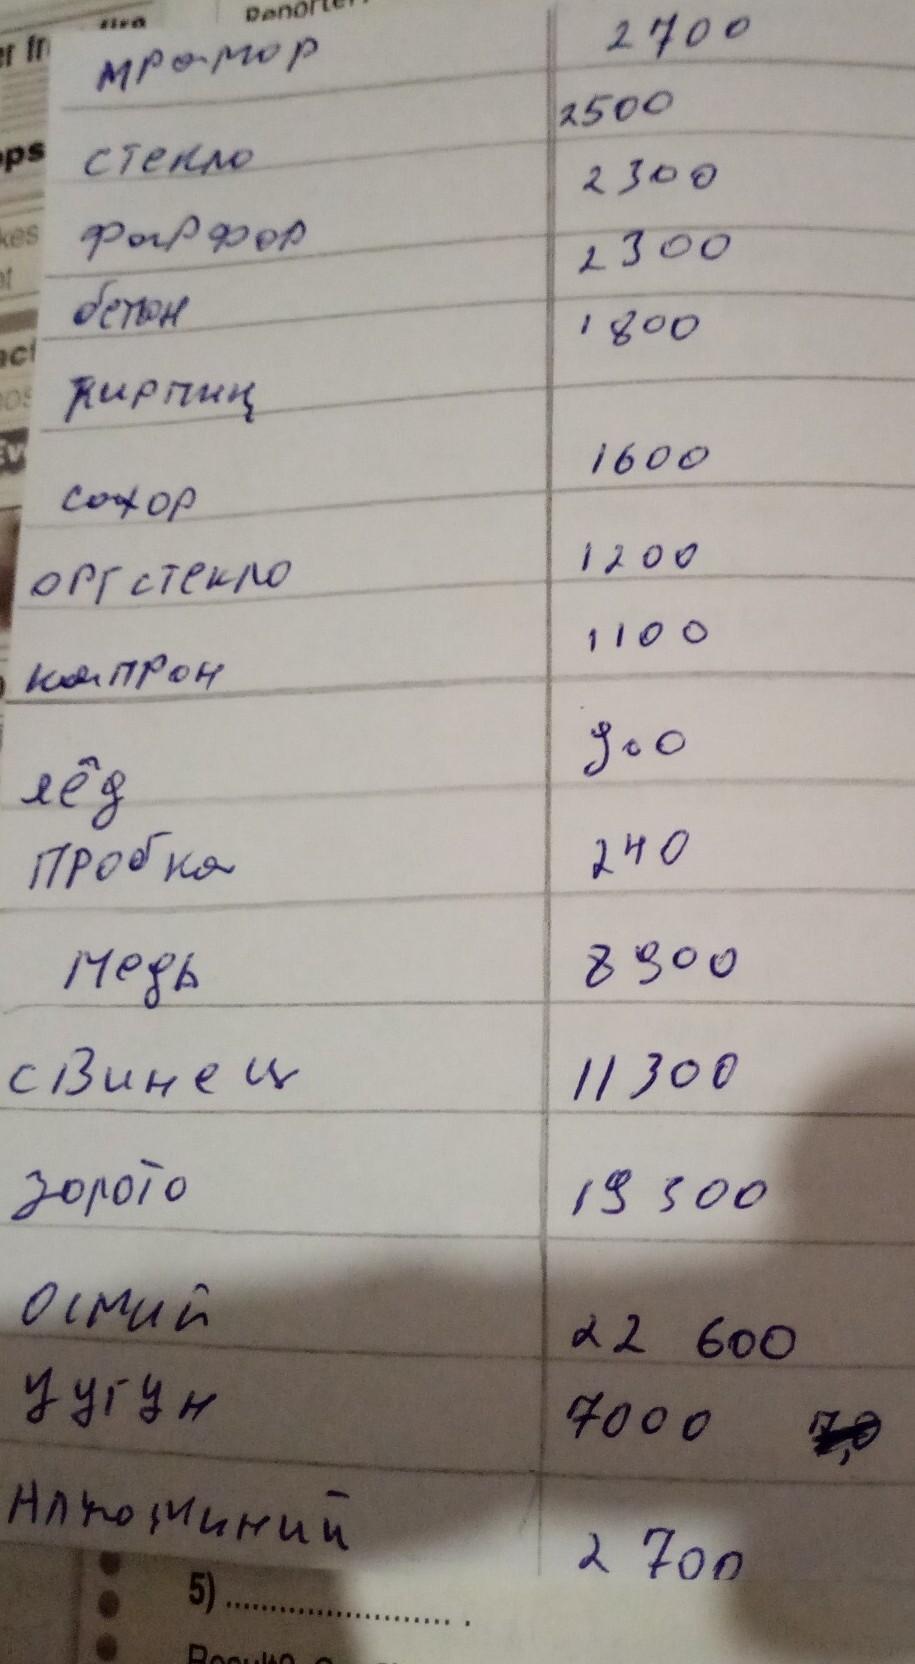 Reporter
мрамор 2700
стекло 2500
фарфор 2300
бетон 2300
кирпич 1800
сахор 1600
оргстекло 1200
капрон 1100
лёд 900
пробка 240
медь 8900
свинец 11300
золото 19300
осмий 22 600
чугун 7000
Алюминий 2 700
5) .............................. .